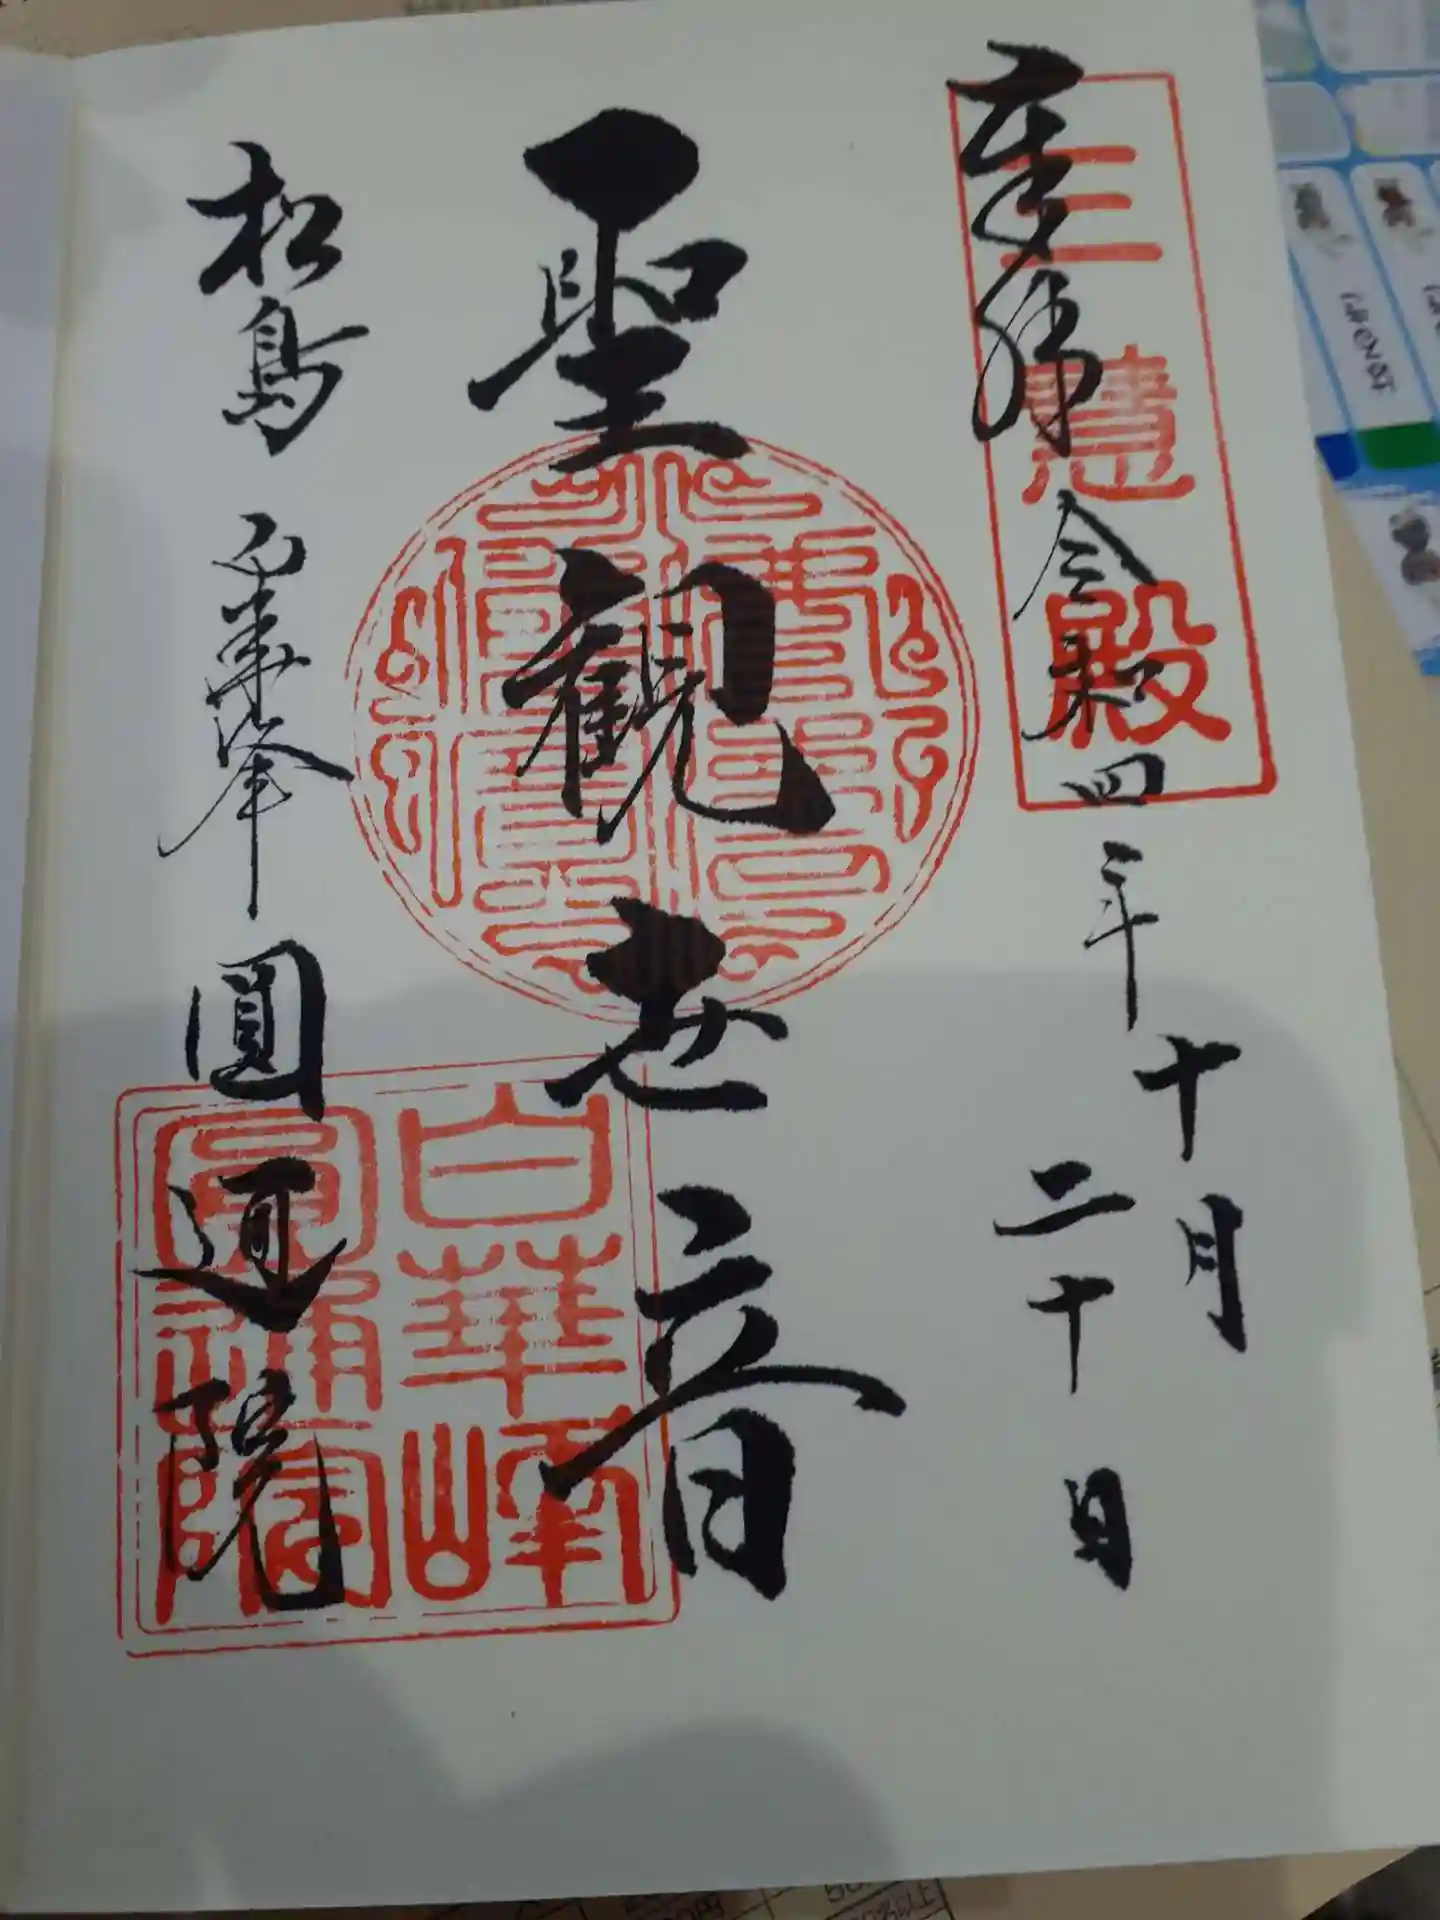 奉拝 令和四年十月
二十日
三慧殿
聖観世音
松島 白華峰 圓通院
白華峰
圓通院